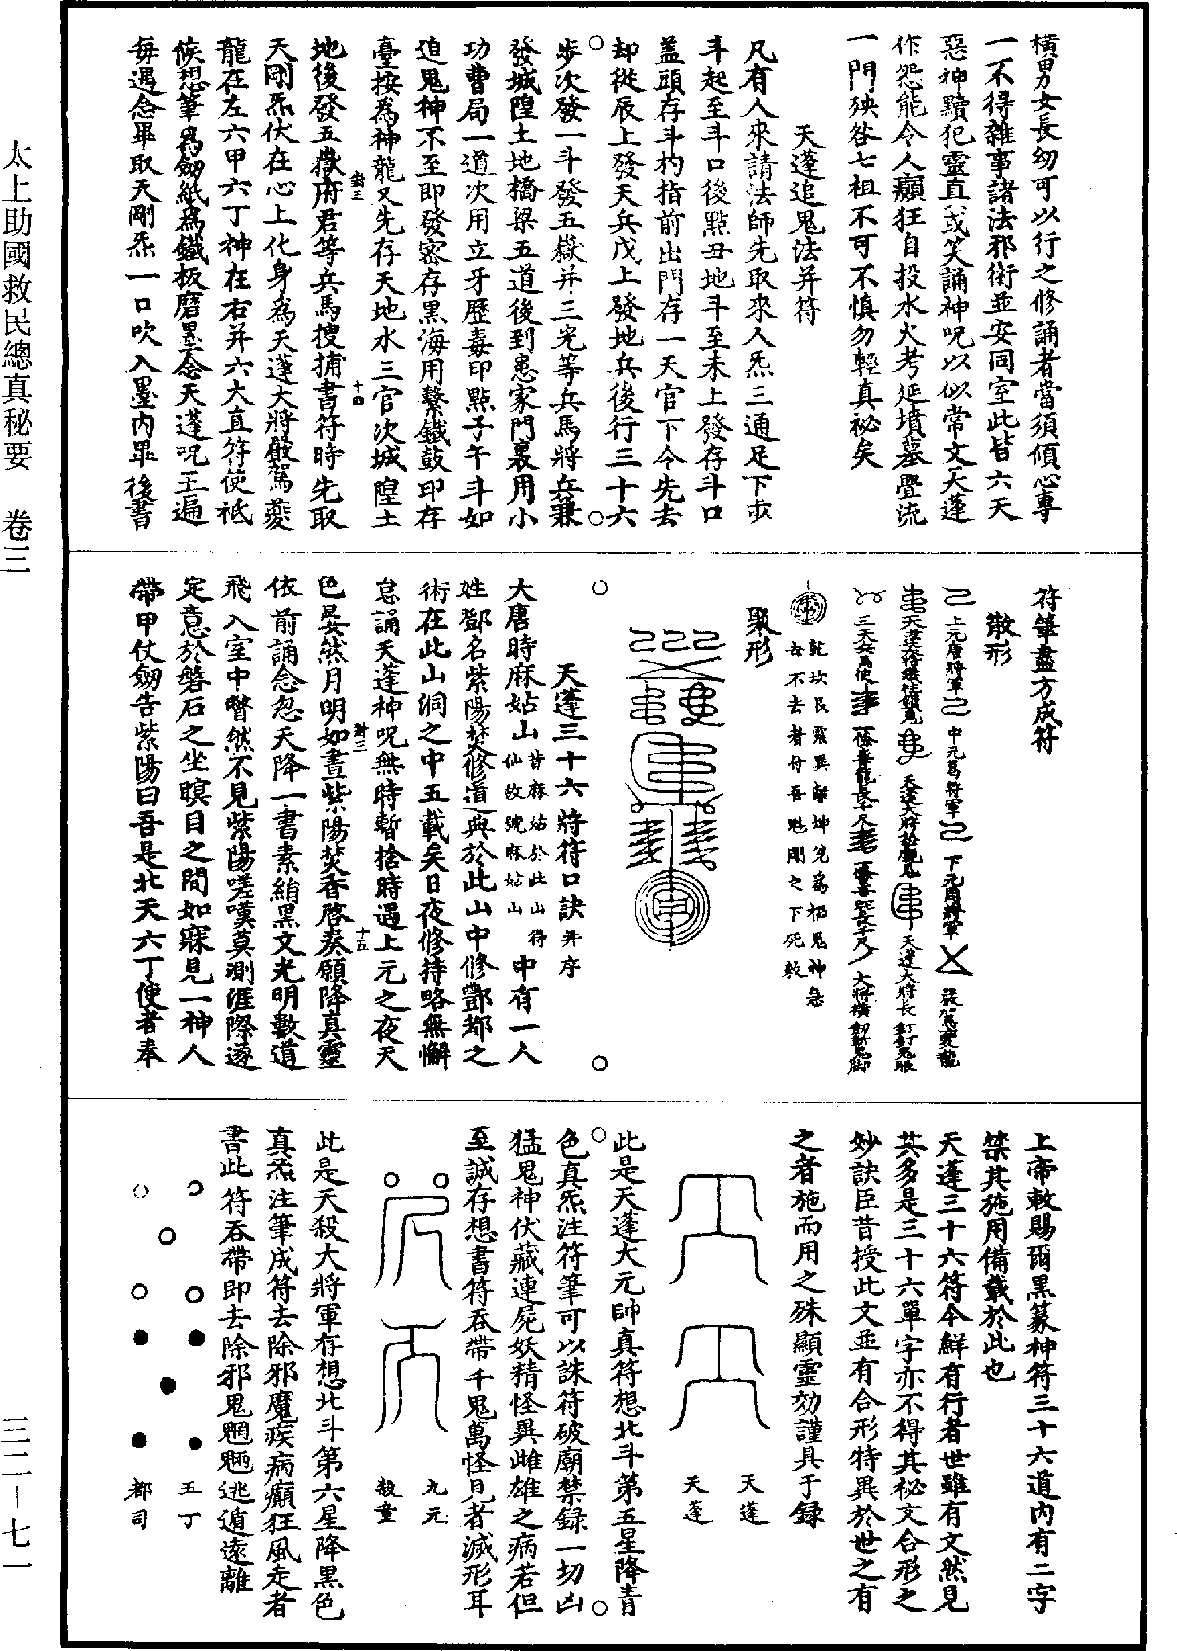 太上助國救民總真秘要 卷三
三二—七一
橫男女長幼可以行之修誦者當須傾心專
一不得雜事諸法邪術並安同室此皆六天
惡神黷犯靈直或笑誦神呪以似常文天蓬
作怨能令人癲狂自投水火考延墳墓疊流
一門殃咎七祖不可不慎勿輕真祕矣
天蓬追鬼法并符
凡有人來請法師先取來人炁三通足下步
斗起至斗口後點丑地斗至未上發存斗口
蓋頭存斗杓指前出門存一天官下令先去
却從辰上發天兵戊上發地兵後行三十六
步次發一斗發五嶽并三光等兵馬將兵兼
發城隍土地橋梁五道後到患家門裏用小
功曹局一道次用立牙歷毒印點子午斗如
追鬼神不至即發密存黑海用擊鐵鼓印存
臺按為神龍又先存天地水三官次城隍土
地後發五嶽府君等兵馬搜捕書符時先取
天剛炁伏在心上化身為天蓬大將嚴駕夔
龍在左六甲六丁神在右并六大直符使祇
候想筆為劒紙為鐵板磨墨念天蓬呪五遍
每遇念畢取天剛炁一口吹入墨內畢後書
符筆盡方成符
散形
上元唐將軍 中元葛將軍 下元周將軍
天蓬大將長釘釘鬼眼
大將橫劒斬鬼脚
乾坎艮震巽離坤兌為招鬼神急
聚形
天蓬三十六將符口訣并序
大唐時麻姑山昔麻姑於此山得仙故號麻姑山中有一人
姓鄧名紫陽焚修道典於此山中修酆都之
術在此山洞之中五載矣日夜修持略無懈
怠誦天蓬神呪無時暫捨時遇上元之夜天
色晏然月明如晝紫陽焚香啓奏願降真靈
依前誦念忽天降一書素絹黑文光明數道
飛入室中瞥然不見紫陽嗟嘆莫測涯際遂
定意於磐石之坐瞑目之間如寐見一神人
帶甲仗劒告紫陽曰吾是北天六丁使者奉
上帝敕賜爾黑篆神符三十六道內有二字
禁其施用備載於此也
天蓬三十六符今鮮有行者世雖有文然見
其多是三十六單字亦不得其秘文合形之
妙訣臣昔授此文並有合形特異於世之有
之者施而用之殊顯靈効謹具于録
天蓬
天蓬
此是天蓬大元帥真符想北斗第五星降青
色真炁注符筆可以誅符破廟禁録一切凶
猛鬼神伏藏連屍妖精怪異雌雄之病若但
至誠存想書符吞帶千鬼萬怪見者滅形耳
九元
殺童
此是天殺大將軍存想北斗第六星降黑色
真炁注筆成符去除邪魔疾病癲狂風走者
書此符吞帶即去除邪鬼魍魎逃遁遠離
五丁
都司